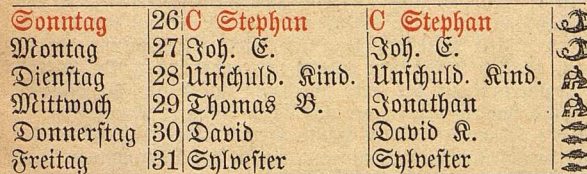 Sonntag 26 C Stephan C Stephan
Montag 27 Joh. E. Joh. E.
Dienſtag 28 Unſchuld. Kind. Unſchuld. Kind.
Mittwoch 29 Thomas B. Jonathan
Donnerſtag 30 David David K.
Freitag 31 Sylveſter Sylveſter